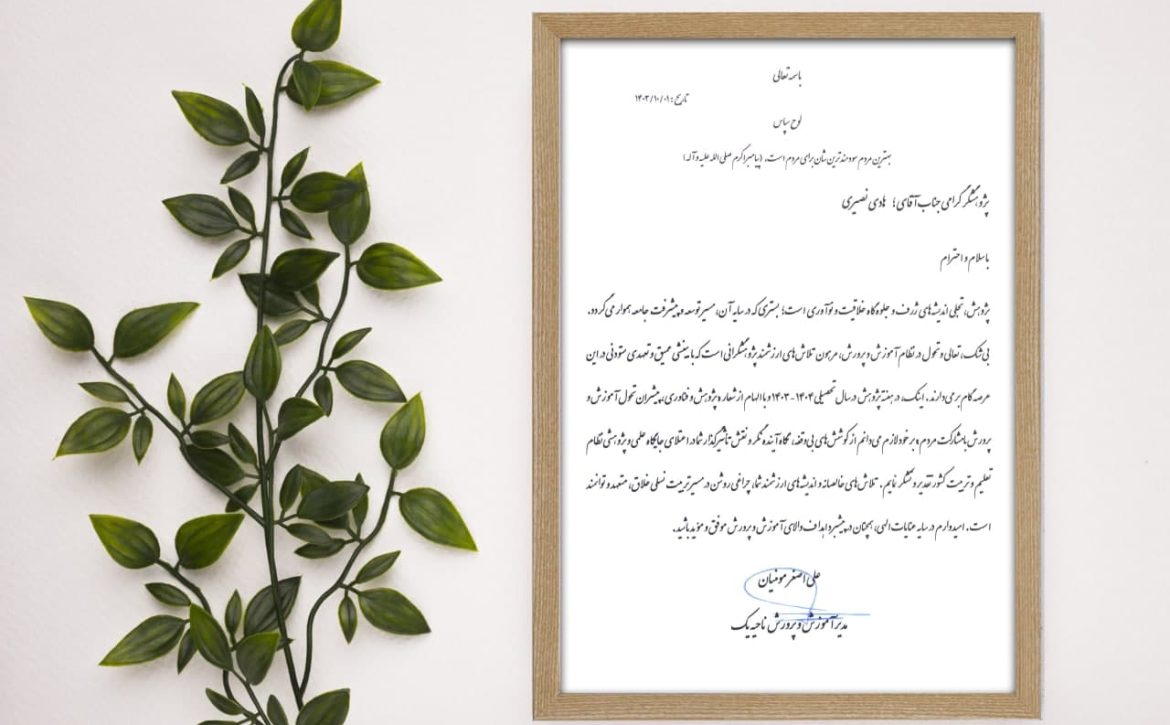 باسمه تعالی
تاریخ: ۱۴۰۳/۱۰/۰۹
لوح سپاس
بهترین مردم سودمندترین شان برای مردم است. (پیامبر اکرم صلی الله علیه و آله)
پژوهشگر گرامی جناب آقای؛ هادی نصیری
با سلام و احترام
پژوهش، تجلی اندیشه‌های ژرف و جلوه گاه خلاقیت و نوآوری است؛ بستری که در سایه آن، مسیر توسعه و پیشرفت جامعه هموار می گردد.
بی شک، تعالی و تحول در نظام آموزش و پرورش، مرهون تلاش های ارزشمند پژوهشگرانی است که با بینشی عمیق و تعهدی ستودنی در این
عرصه گام بر می دارند. اینک، در هفته پژوهش در سال تحصیلی ۱۴۰۴-۱۴۰۳ و با الهام از شعار «پژوهش و فناوری، پیشران تحول آموزش و
پرورش با مشارکت مردم» بر خود لازم می دانم از کوشش های بی وقفه، نگاه آینده نگر و نقش تأثیرگذار شما در اعتلای جایگاه علمی و پژوهشی نظام
تعلیم و تربیت کشور تقدیر و تشکر نمایم. تلاش های خالصانه و اندیشه های ارزشمند شما، چراغی روشن در مسیر تربیت نسلی خلاق، متعهد و توانمند
است. امیدوارم در سایه عنایات الهی، همچنان در پیشبرد اهداف والای آموزش و پرورش موفق و مؤید باشید.
علی اصغر مومنیان
مدیر آموزش و پرورش ناحیه یک